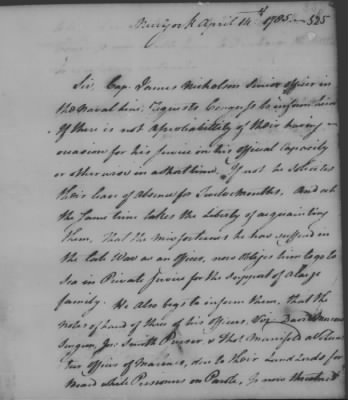 New York April 14th 1785. 525
Sir, Cap. James Nicholson Senior officer in
the Naval line, Requests Congress to inform him
If there is not a probability of their having
occasion for his Service in his official Capacity
or otherwise in a short time. If not he Solicites
their leave of absence for Twelve Months. And at
the same time takes the Liberty of acquainting
them, that the misfortunes he has suffered in
the late War as an officer, now obliges him to go to
Sea in Private Service for the support of a large
family. He also begs to inform them, that the
notes of hand of three of his officers, Viz David
Surgeon, Jos: Smith Purser, & Thos Manifold a Volun
teer officer of Marines, due to their Landlords for
Board while Prisoners on Parole, Is now